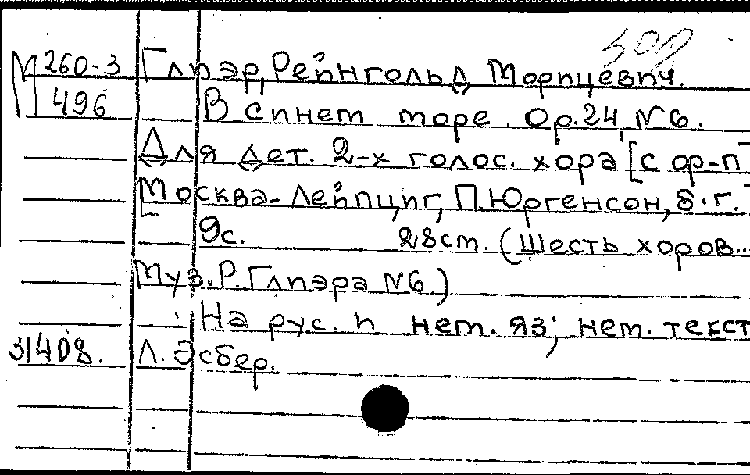 М 260-3 Глиэр, Рейнгольд Морицевич.
496 В синем море. Ор.24, №6.
Для дет. 2-х голос. хора [с ф-п
Москва-Лейпциг, П.Юргенсон, б.г.
9с. 28cm. (Шесть хоров...
Муз. Р. Глиэра №6.)
На рус. и нем. яз; нем. текст
31408. Л. Эсбер.